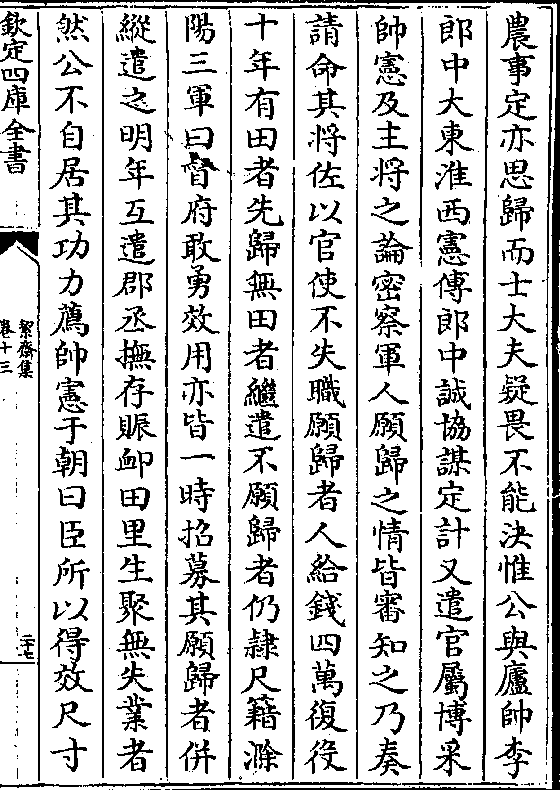 農事定亦思歸而士大夫疑畏不能決惟公與廬帥李
郎中大東淮西憲傳郎中誠協謀定計又遣官屬博采
帥憲及主將之論密察軍人願歸之情皆審知之乃奏
請命其將佐以官使不失職願歸者人給錢四萬復役
十年有田者先歸無田者繼遣不願歸者仍隷尺籍滁
陽三軍曰督府敢勇效用亦皆一時招募其願歸者併
縱遣之明年互遣郡丞撫存賑卹田里生聚無失業者
然公不自居其功力薦帥憲于朝曰臣所以得效尺寸
欽定四庫全書
絜齋集
卷十三
二十七